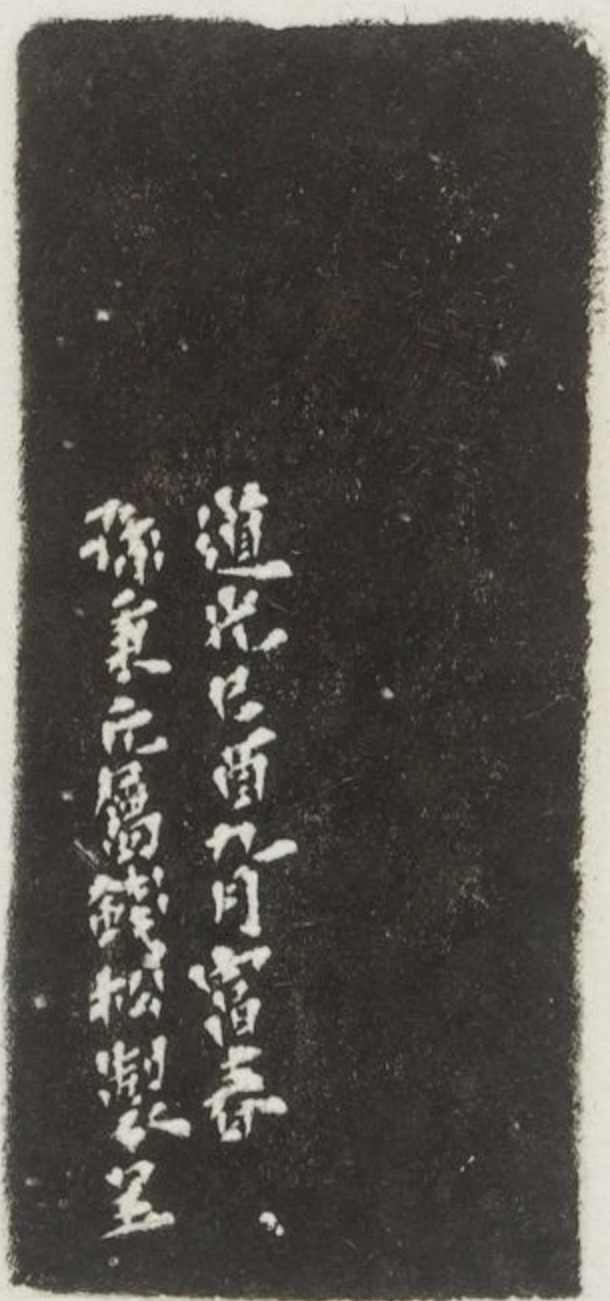 道光己酉九月富春
孫秉元屬錢松製呈